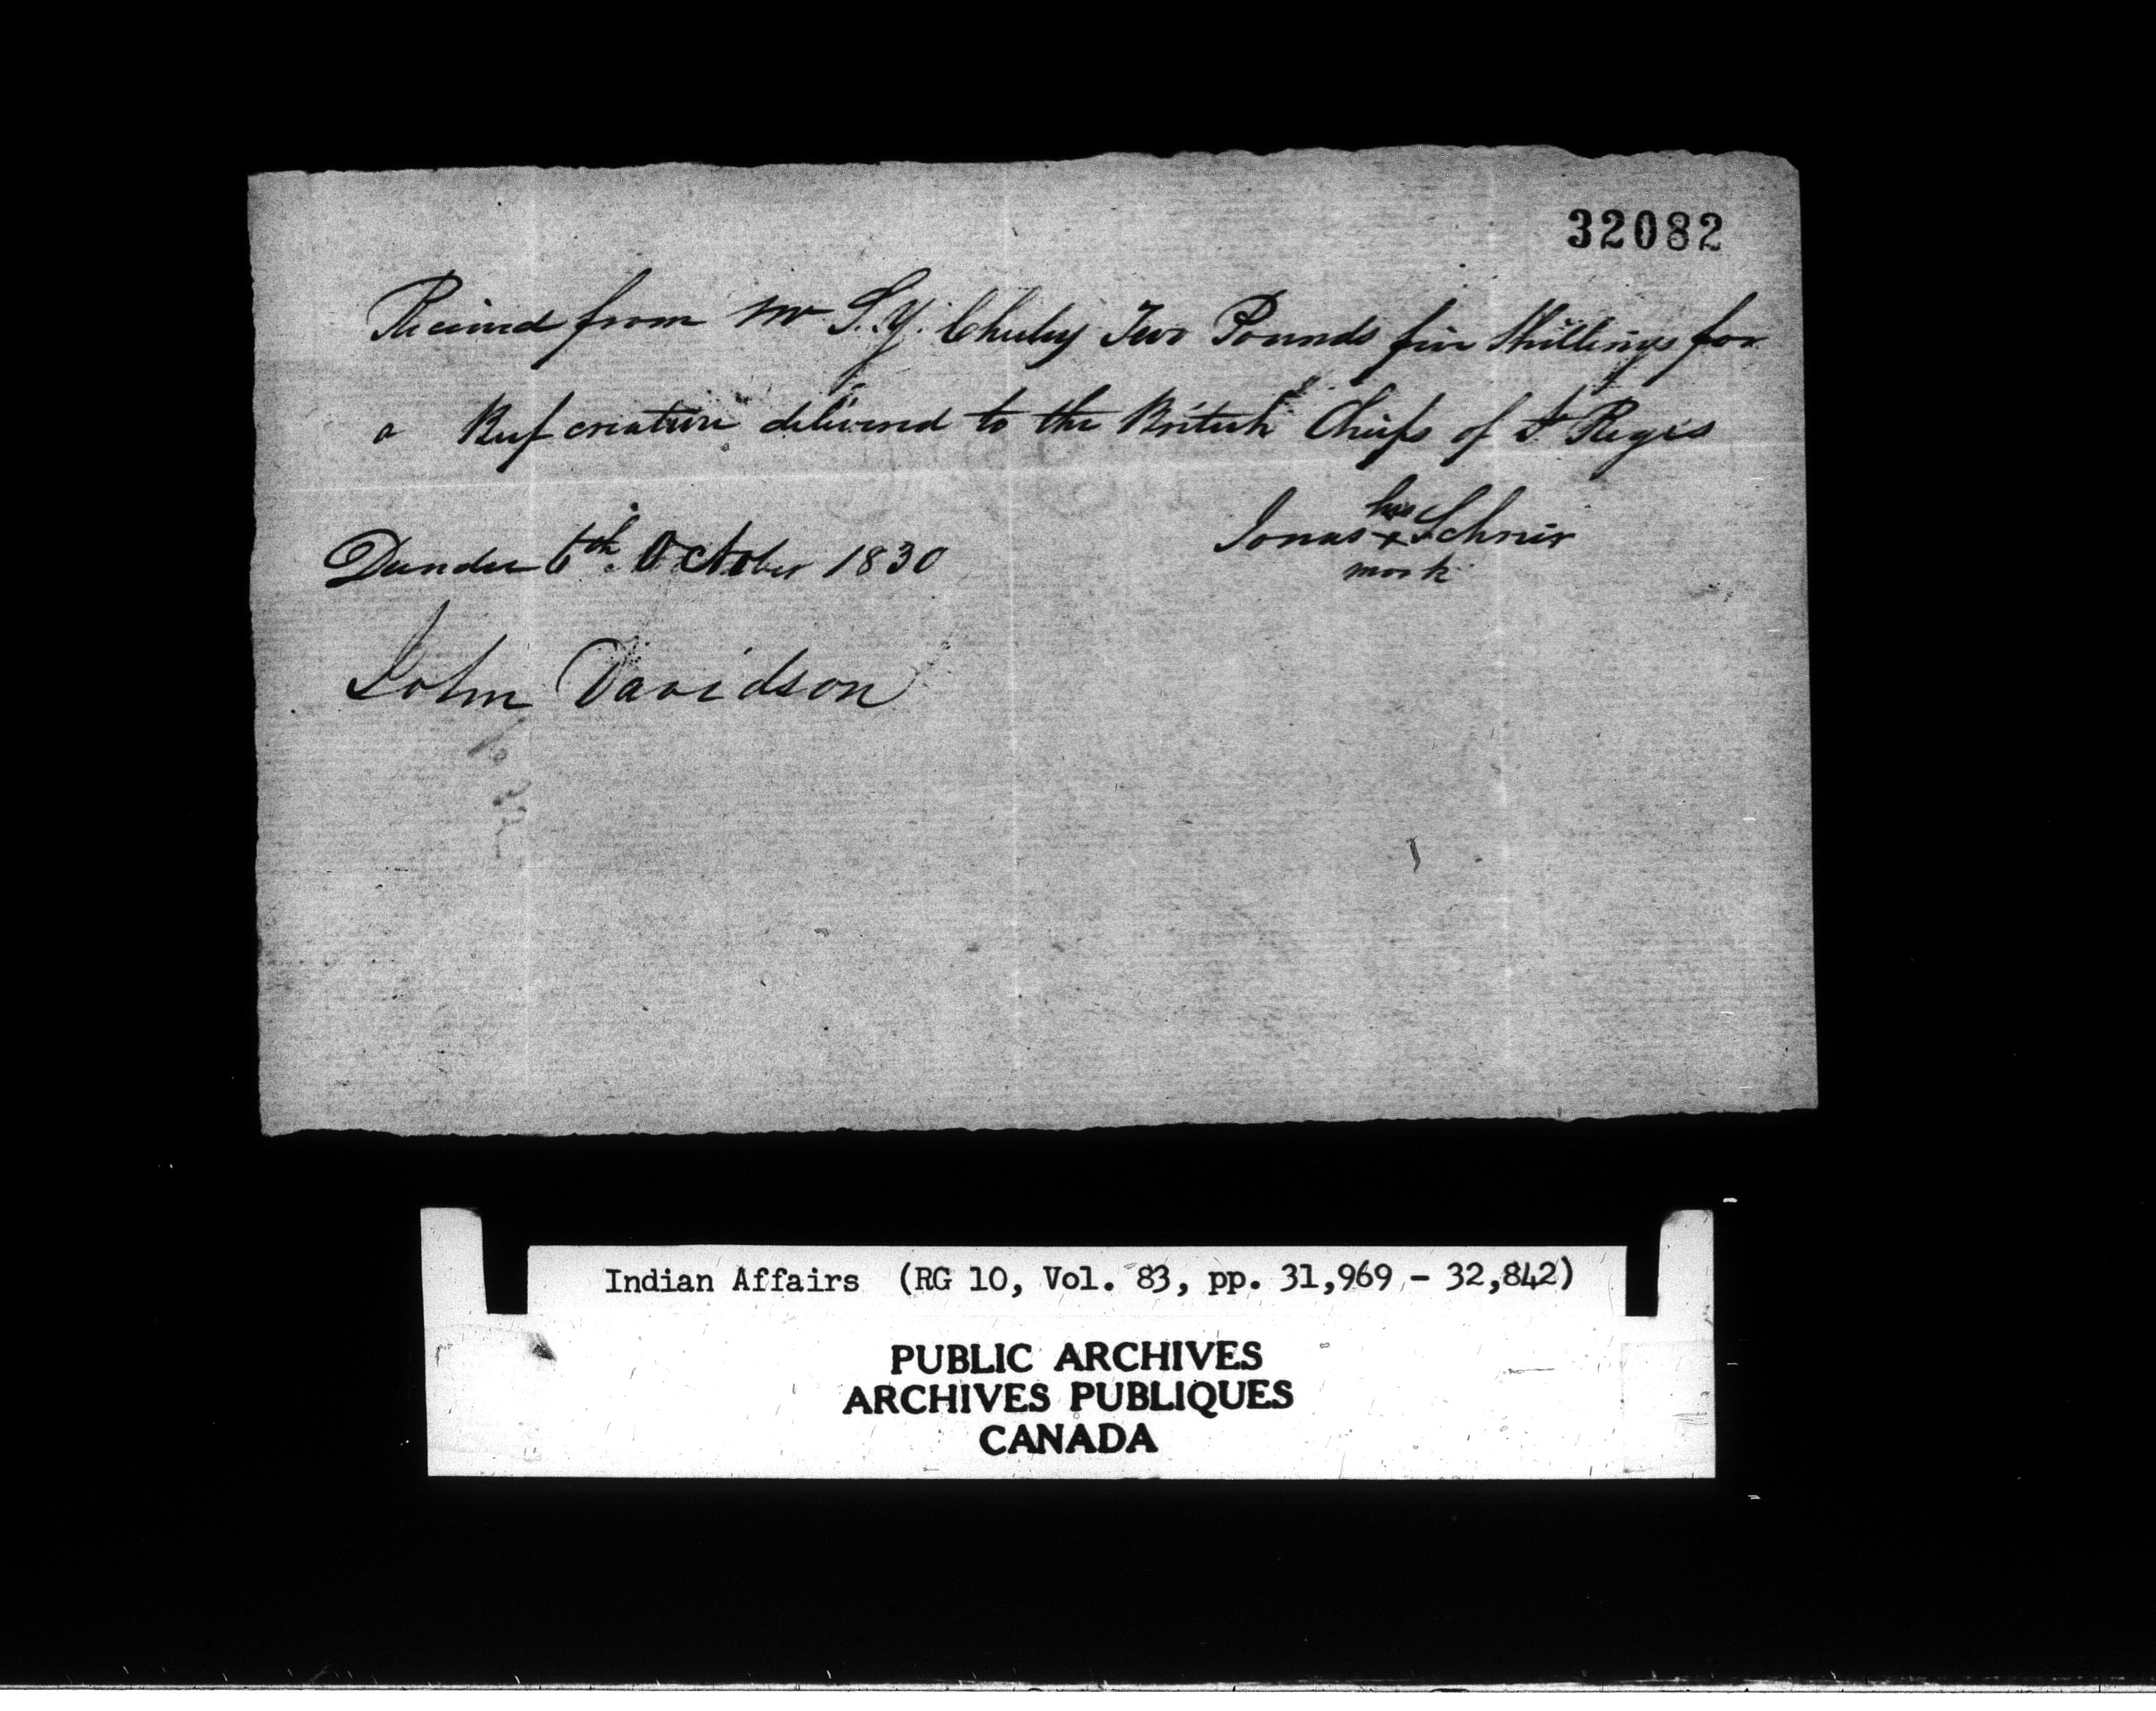 32082
Received from Mr S. Y. Chesley Two Pounds five Shillings for
a Beef creature delivered to the British Chiefs of St Regis
his
Jonas + Schnier
mark
Dundee 6th October 1830
John Davidson
Indian Affairs (RG 10, Vol. 83, pp. 31,969 - 32,842)
PUBLIC ARCHIVES
ARCHIVES PUBLIQUES
CANADA